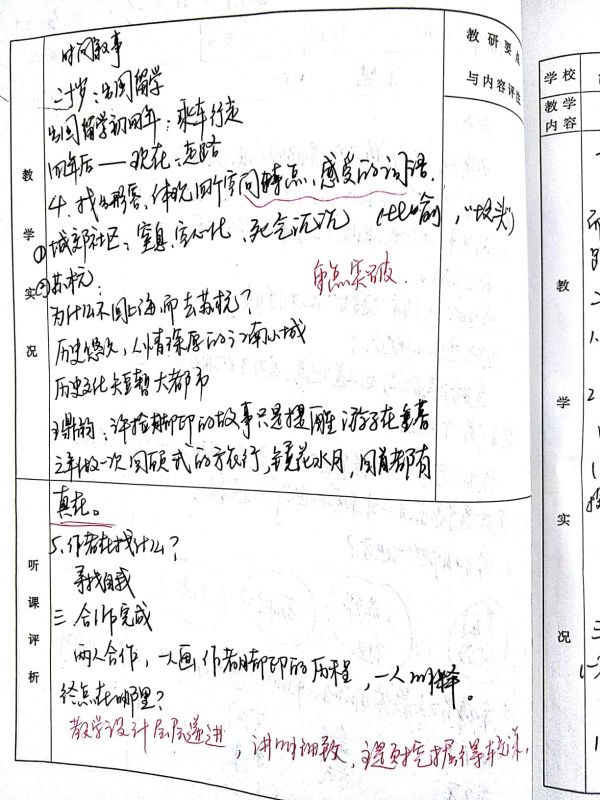 教研要点
与内容评注
教学实况
时间叙事
二十岁：出国留学
出国留学初四年：乘车行走
四年后——现在：走路
4、找出形容、体现四个空间特点、感受的词语.
①城郊社区：窒息、空心化、死气沉沉 (比喻，"坟头")
②苏杭：
重点突破.
为什么不回上海而去苏杭？
历史悠久，人情深厚的江南小城
历史文化短暂大都市
许拾脚印的故事只是提醒游子在暮暮
之年做一次回顾式的旅行，镜花水月，回首都有
真在。
听课评析
5、作者在找什么？
寻找自我
三 合作完成
两人合作，一人画作者脚印的历程，一人讲解。
终点在哪里？
教学设计层层递进，讲解细致，主题挖掘得较深，
学校
教学
内容
教学实况